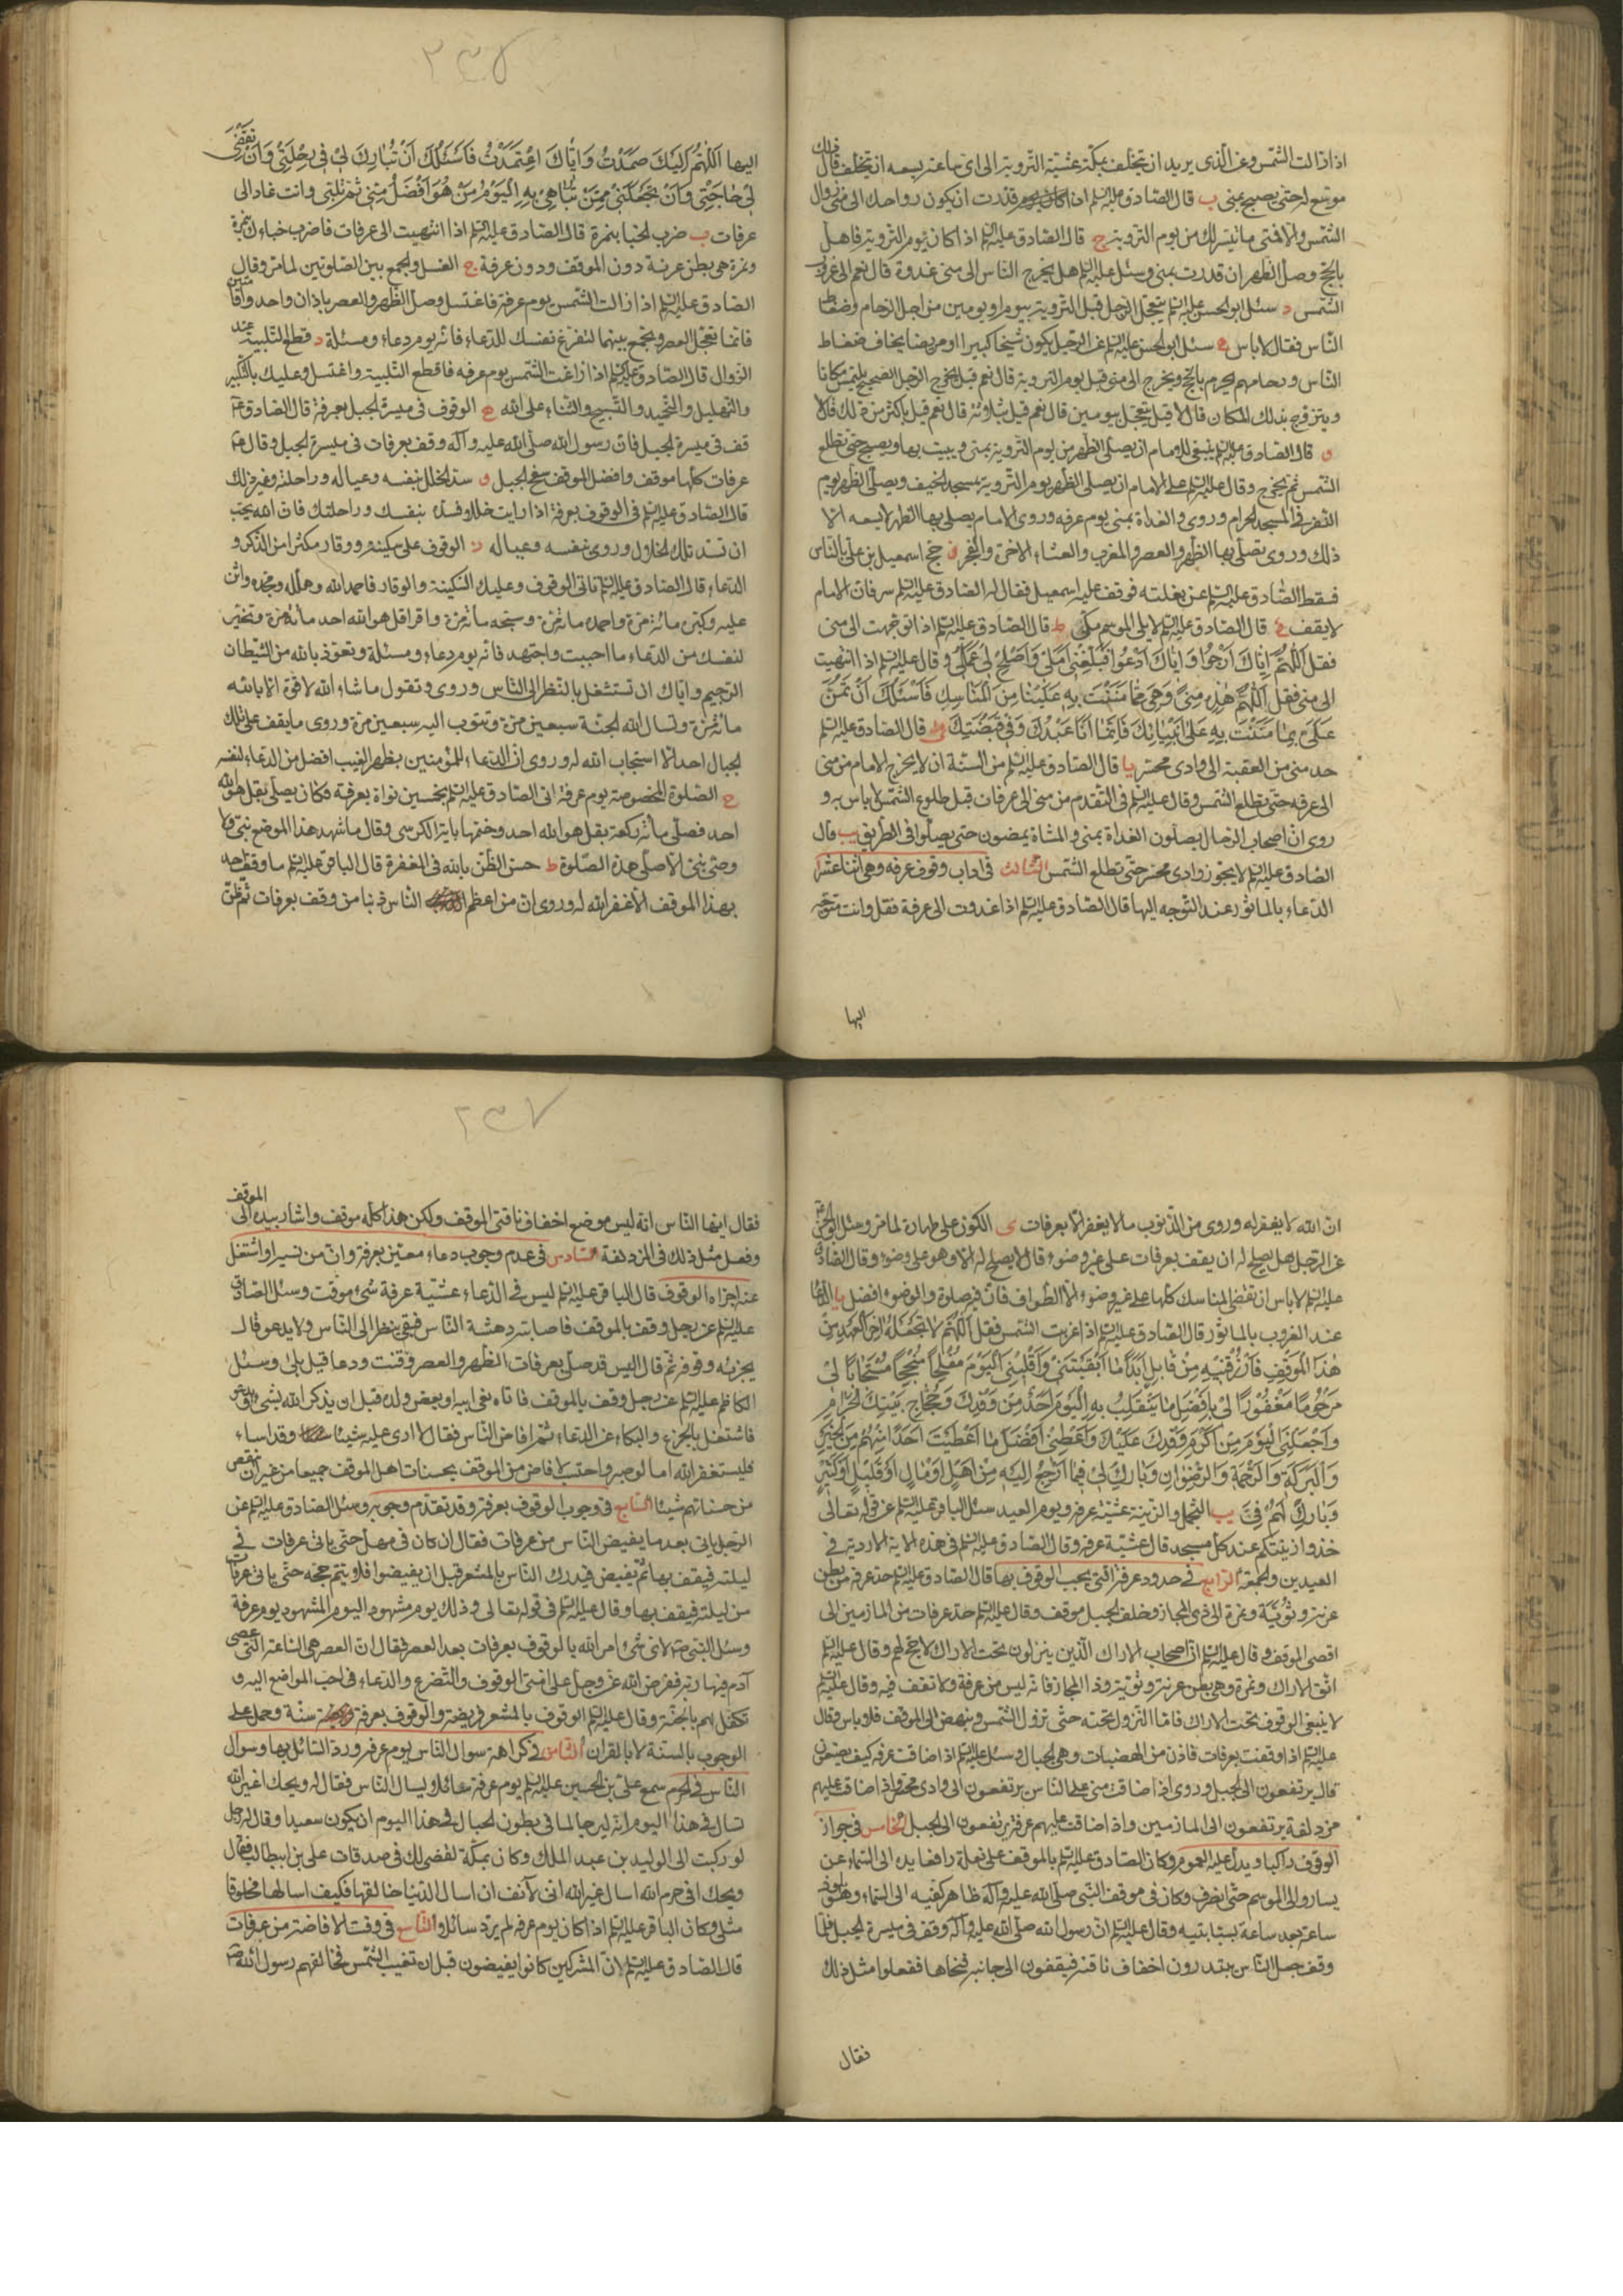 اذا زالت الشمس وعن الذي يريد ان يتخلف بمكة عشية التروية الى اى ساعة يسعه ان يتخلف قال ذلك
موسع له حتى يصبح بمنى ب قال الصادق عليه السلم اذا كان يوم قدرت ان يكون رواحك الى منى زوال
الشمس والا فمتى ما تيسر لك من يوم التروية ج قال الصادق عليه السلم اذا كان يوم التروية فاهل
بالحج وصل الظهر ان قدرت بمنى وسئل عليه السلم هل يخرج الناس الى منى غدوة قال نعم الى غروب
الشمس د سئل ابو الحسن عليه السلم يتعجل الرجل قبل التروية بيوم او يومين من اجل الزحام وضغاط
الناس فقال لا باس ه سئل ابو الحسن عليه السلم عن الرجل يكون شيخا كبيرا او مريضا يخاف ضغاط
الناس وزحامهم يحرم بالحج ويخرج الى منى قبل يوم التروية قال نعم قيل فيخرج الرجل الصحيح يلتمس مكانا
ويتروح بذلك المكان قال لا قيل يتعجل بيومين قال نعم قيل بثلاثة قال نعم قيل باكثر من ذلك قال لا
و قال الصادق عليه السلم ينبغى للامام ان يصلى الظهر من يوم التروية بمنى ويبيت بها ويصبح حتى تطلع
الشمس ثم يخرج وقال عليه السلم على الامام ان يصلى الظهر يوم التروية بمسجد الخيف ويصلى الظهر يوم
النفر في المسجد الحرام وروى والغداة بمنى يوم عرفه وروى الامام يصلى بها الظهر لا يسعه الا
ذلك وروى تصلى بها الظهر والعصر والمغرب والعشاء الاخرة والفجر ز حج اسمعيل بن على بالناس
فسقط الصادق عليه السلم عن بغلته فوقف عليه اسمعيل فقال له الصادق عليه السلم سر فان الامام
لا يقف ح قال الصادق عليه السلم لا يلى الموسم مكى ط قال الصادق عليه السلم اذا توجهت الى منى
فقل اَللّهُمَّ اِيّاكَ اَرْجُو وَاِيّاكَ اَدْعُو فَبَلِّغْنِى اَمَلِى وَاَصْلِحْ لِى عَمَلِى و قال عليه السلم اذا انتهيت
الى منى فقل اَللّهُمَّ هذِهِ مِنىً وَهِىَ مِمّا مَنَنْتَ بِهِ عَلَيْنا مِنَ الْمَناسِكِ فَاَسْئَلُكَ اَنْ تَمُنَّ
عَلَىَّ بِما مَنَنْتَ بِهِ عَلى اَنْبِيائِكَ فَاِنَّما اَنَا عَبْدُكَ وَفِى قَبْضَتِكَ ى قال الصادق عليه السلم
حد منى من العقبة الى وادى محسر يا قال الصادق عليه السلم من السنة ان لا يخرج الامام من منى
الى عرفه حتى تطلع الشمس وقال عليه السلم فى التقدم من منى الى عرفات قبل طلوع الشمس لا باس به و
روى ان اصحاب الرحال يصلون الغداة بمنى والمشاة يمضون حتى يصلوا فى الطريق يب قال
الصادق عليه السلم لا يتجوز وادى محسر حتى تطلع الشمس الثالث فى اداب وقوف عرفه وهى اثنا عشر ا
الدعاء بالماثور عند التوجه اليها قال الصادق عليه السلم اذا غدوت الى عرفة فقل وانت متوجه
اليها
٢٣٦
اليها اَللّهُمَّ اِلَيْكَ صَمَدْتُ وَاِيّاكَ اعْتَمَدْتُ فَاَسْئَلُكَ اَنْ تُبارِكَ لِى فِى رِحْلَتِى وَاَنْ تَقْضِىَ
لِى حاجَتِى وَاَنْ تَجْعَلَنِى مِمَّنْ تُباهِى بِهِ الْيَوْمَ مَنْ هُوَ اَفْضَلُ مِنِّى ثم تلبى وانت غاد الى
عرفات ب ضرب الخبا بنمرة قال الصادق عليه السلم اذا انتهيت الى عرفات فاضرب خباءك بنمرة
ونمرة هى بطن عرنة دون الموقف ودون عرفة ج الغسل والجمع بين الصلوتين لما مر وقال
الصادق عليه السلم اذا زالت الشمس يوم عرفة فاغتسل وصل الظهر والعصر باذان واحد واقامتين
فانما تعجل العصر وتجمع بينهما لتفرغ نفسك للدعاء فانه يوم دعاء ومسئلة د قطع التلبية عند
الزوال قال الصادق عليه السلم اذا زاغت الشمس يوم عرفه فاقطع التلبية واغتسل وعليك بالتكبير
والتهليل والتحميد والتسبيح والثناء على الله ه الوقوف فى ميسرة الجبل بعرفة قال الصادق ع
قف فى ميسرة الجبل فان رسول الله صلى الله عليه وآله وقف بعرفات فى ميسرة الجبل وقال ع
عرفات كلها موقف وافضل الموقف سفح الجبل و سد الخلل بنفسه وعياله وراحلته وغير ذلك
قال الصادق عليه السلم فى الوقوف بعرفة اذا رايت خللا فسده بنفسك وراحلتك فان الله يحب
ان تسد تلك الخلال وروى بنفسه وعياله ز الوقوف على سكينة ووقار مكثرا من الذكر و
الدعاء قال الصادق عليه السلم تاتى الوقوف وعليك السكينة والوقار فاحمد الله وهلله ومجده واثن
عليه وكبره مائة مرة واحمده مائة مرة وسبحه مائة مرة واقرا قل هو الله احد مائة مرة وتخير
لنفسك من الدعاء ما احببت واجتهد فانه يوم دعاء ومسئلة وتعوذ بالله من الشيطان
الرجيم واياك ان تستشغل بالنظر الى الناس وروى وتقول ما شاء الله لا قوة الا بالله
مائة مرة وتسال الله الجنة سبعين مرة وتتوب اليه سبعين مرة وروى ما يقف على تلك
الجبال احد الا استجاب الله له وروى ان الدعاء للمؤمنين بظهر الغيب افضل من الدعاء لنفسه
ح الصلوة المخصوصة يوم عرفة اتى الصادق عليه السلم بخمسين نواة بعرفة فكان يصلى بقل هو الله
احد فصلى مائة ركعة بقل هو الله احد وختمها باية الكرسى وقال ما شهد هذا الموضع نبى ولا
وصى نبى الا صلى هذه الصلوة ط حسن الظن بالله فى المغفرة قال الباقر عليه السلم ما وقف احد
بهذا الموقف الا غفر الله له وروى ان من اعظم الناس ذنبا من وقف بعرفات ثم ظن
ان الله لا يغفر له وروى من الذنوب ما لا يغفر الا بعرفات ى الكون على طهارة لما مر وسئل ابو الحسن
عن الرجل هل يصلح له ان يقف بعرفات على غير وضوء قال لا يصلح له الا وهو على وضوء وقال الصادق
عليه السلم لا باس ان تقضى المناسك كلها على غير وضوء الا الطواف فان فيه صلوة والوضوء افضل يا الدعا
عند الغروب بالماثور قال الصادق عليه السلم اذا غربت الشمس فقل اَللّهُمَّ لا تَجْعَلْهُ آخِرَ الْعَهْدِ مِنْ
هذَا الْمَوْقِفِ فَارْزُقْنِيهِ مِنْ قابِلٍ اَبَدًا ما اَبْقَيْتَنِى وَاقْلِبْنِى الْيَوْمَ مُفْلِحًا مُنْجِحًا مُسْتَجابًا لِى
مَرْحُومًا مَغْفُورًا لِى بِاَفْضَلِ ما يَنْقَلِبُ بِهِ الْيَوْمَ اَحَدٌ مِنْ وَفْدِكَ وَحُجّاجِ بَيْتِكَ الْحَرامِ
وَاجْعَلْنِى الْيَوْمَ مِنْ اَكْرَمِ وَفْدِكَ عَلَيْكَ وَاَعْطِنِى اَفْضَلَ ما اَعْطَيْتَ اَحَدًا مِنْهُمْ مِنَ الْخَيْرِ
وَالْبَرَكَةِ وَالرَّحْمَةِ وَالرِّضْوانِ وَبارِكْ لِى فِيما اَرْجِعُ اِلَيْهِ مِنْ اَهْلٍ اَوْ مالٍ اَوْ قَلِيلٍ اَوْ كَثِيرٍ
وَبارِكْ لَهُمْ فِىَّ يب التجمل والزينة عشية عرفه ويوم العيد سئل الباقر عليه السلم عن قوله تعالى
خذوا زينتكم عند كل مسجد قال عشية عرفه وقال الصادق عليه السلم فى هذه الاية الاردية فى
العيدين والجمعة الرابع فى حدود عرفة التى يجب الوقوف بها قال الصادق عليه السلم حد عرفه من بطن
عرنة وثوية ونمرة الى ذى المجاز وخلف الجبل موقف وقال عليه السلم حد عرفات من المازمين الى
اقصى الموقف وقال عليه السلم ان اصحاب الاراك الذين ينزلون تحت الاراك لا حج لهم وقال عليه السلم
اتق الاراك ونمرة وهى بطن عرنة وثوية وذا المجاز فانه ليس من عرفة ولا تقف فيه وقال عليه السلم
لا ينبغى الوقوف تحت الاراك فاما النزول تحته حتى تزول الشمس وينهض الى الموقف فلا باس وقال
عليه السلم اذا وقفت بعرفات فادن من الهضبات وهى الجبال وسئل عليه السلم اذا ضاقت عرفه كيف يصنعون
قال يرتفعون الى الجبل وروى اذا ضاقت منى على الناس يرتفعون الى وادى محسر واذا ضاقت عليهم
مزدلفة يرتفعون الى المازمين واذا ضاقت عليهم عرفة يرتفعون الى الجبل الخامس فى جواز
الوقوف راكبا ويدل عليه العموم وكان الصادق عليه السلم بالموقف على بغلة رافعا يده الى السماء عن
يسار والى الموسم حتى انصرف وكان فى موقف النبى صلى الله عليه وآله ظاهر كفيه الى السماء وهو يلوذ
ساعة بعد ساعة بسبابتيه وقال عليه السلم ان رسول الله صلى الله عليه وآله وقف فى ميسرة الجبل فلما
وقف جعل الناس يبتدرون اخفاف ناقته فيقفون الى جانبه فنحاها ففعلوا مثل ذلك
فقال
٢٣٧
فقال ايها الناس انه ليس موضع اخفاف ناقتى الموقف ولكن هذا كله موقف واشار بيده الى الموقف
وفعل مثل ذلك فى المزدلفة السادس فى عدم وجوب دعاء معين بعرفة وان من نسيه او اشتغل
عنه اجزاه الوقوف قال الباقر عليه السلم ليس فى الدعاء عشية عرفة شىء موقت وسئل الصادق
عليه السلم عن رجل وقف بالموقف فاصابته دهشة الناس فبقى ينظر الى الناس ولا يدعو قال
يجزيه وقوفه ثم قال اليس قد صلى بعرفات الظهر والعصر وقنت ودعا قيل بلى وسئل
الكاظم عليه السلم عن رجل وقف بالموقف فاتاه نعى ابيه او بعض ولده قبل ان يذكر الله بشىء او يدعو
فاشتغل بالجزع والبكاء عن الدعاء ثم افاض الناس فقال لا ارى عليه شيئا وقد اساء
فليستغفر الله اما لو صبر واحتسب لافاض من الموقف بحسنات اهل الموقف جميعا من غير ان ينقص
من حسناتهم شيئا السابع فى وجوب الوقوف بعرفة وقد تقدم وجوبه وسئل الصادق عليه السلم عن
الرجل ياتى بعد ما يفيض الناس من عرفات فقال ان كان فى مهل حتى ياتى عرفات فى
ليلته فيقف بها ثم يفيض فيدرك الناس بالمشعر قبل ان يفيضوا فلا يتم حجه حتى ياتى عرفات
من ليلته فيقف بها وقال عليه السلم فى قوله تعالى وذلك يوم مشهود اليوم المشهود يوم عرفة
وسئل النبى ص لاى شىء امر الله بالوقوف بعرفات بعد العصر فقال ان العصر هى الساعة التى عصى
آدم فيها ربه ففرض الله عز وجل على امتى الوقوف والتضرع والدعاء فى احب المواضع اليه و
تكفل لهم بالجنة وقال عليه السلم الوقوف بالمشعر فريضة والوقوف بعرفة سنة وحمل على
الوجوب بالسنة لا بالقران الثامن فى كراهة سوال الناس يوم عرفه ورد السائل بها وسوال
الناس فى الحرم سمع على بن الحسين عليه السلم يوم عرفة سائلا يسال الناس فقال له ويحك اغير الله
تسال فى هذا اليوم انه ليرجا لما فى بطون الحبالى فى هذا اليوم ان يكون سعيدا وقال له رجل
لو ركبت الى الوليد بن عبد الملك وكان بمكة لقضى لك فى صدقات على بن ابيطالب فقال
ويحك افى حرم الله اسال غير الله انى لآنف ان اسال الدنيا خالقها فكيف اسالها مخلوقا
مثلى وكان الباقر عليه السلم اذا كان يوم عرفه لم يرد سائلا التاسع فى وقت الافاضة من عرفات
قال الصادق عليه السلم ان المشركين كانوا يفيضون قبل ان تغيب الشمس فخالفهم رسول الله ص